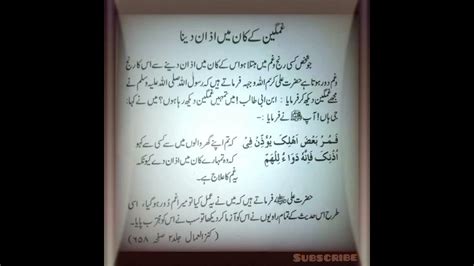 غمگین کے کان میں اذان دینا
جو شخص کسی رنج و غم میں مبتلا ہو اس کے کان میں اذان دینے سے اس کا رنج
و غم دور ہوتا ہے حضرت علی کرم اللہ وجہہ فرماتے ہیں کہ رسول اللہ صلی اللہ علیہ وسلم نے
مجھے غمگین دیکھ کر فرمایا : ابن ابی طالب ! میں تمہیں غمگین دیکھ رہا ہوں؟ میں نے کہا
جی ہاں! آپ ﷺ نے فرمایا :-
فَمُرْ بَعْضَ اَهْلِکَ یُؤَذِّنُ فِیْ اُذُنِکَ فَاِنَّهٗ دَوَاءٌ لِلْهَمِّ
کہ تم اپنے گھر والوں میں سے کسی سے کہو کہ وہ تمہارے کان میں اذان دے کیونکہ یہ غم کا علاج ہے۔
حضرت علی فرماتے ہیں کہ میں نے یہ عمل کیا تو میرا غم دور ہو گیا، اسی
طرح اس حدیث کے تمام راویوں نے اس کو آزما کر دیکھا تو سب نے اس کو مجرب پایا۔
(کنز العمال جلد ۲ صفحہ ۶۵۸)
SUBSCRIBE